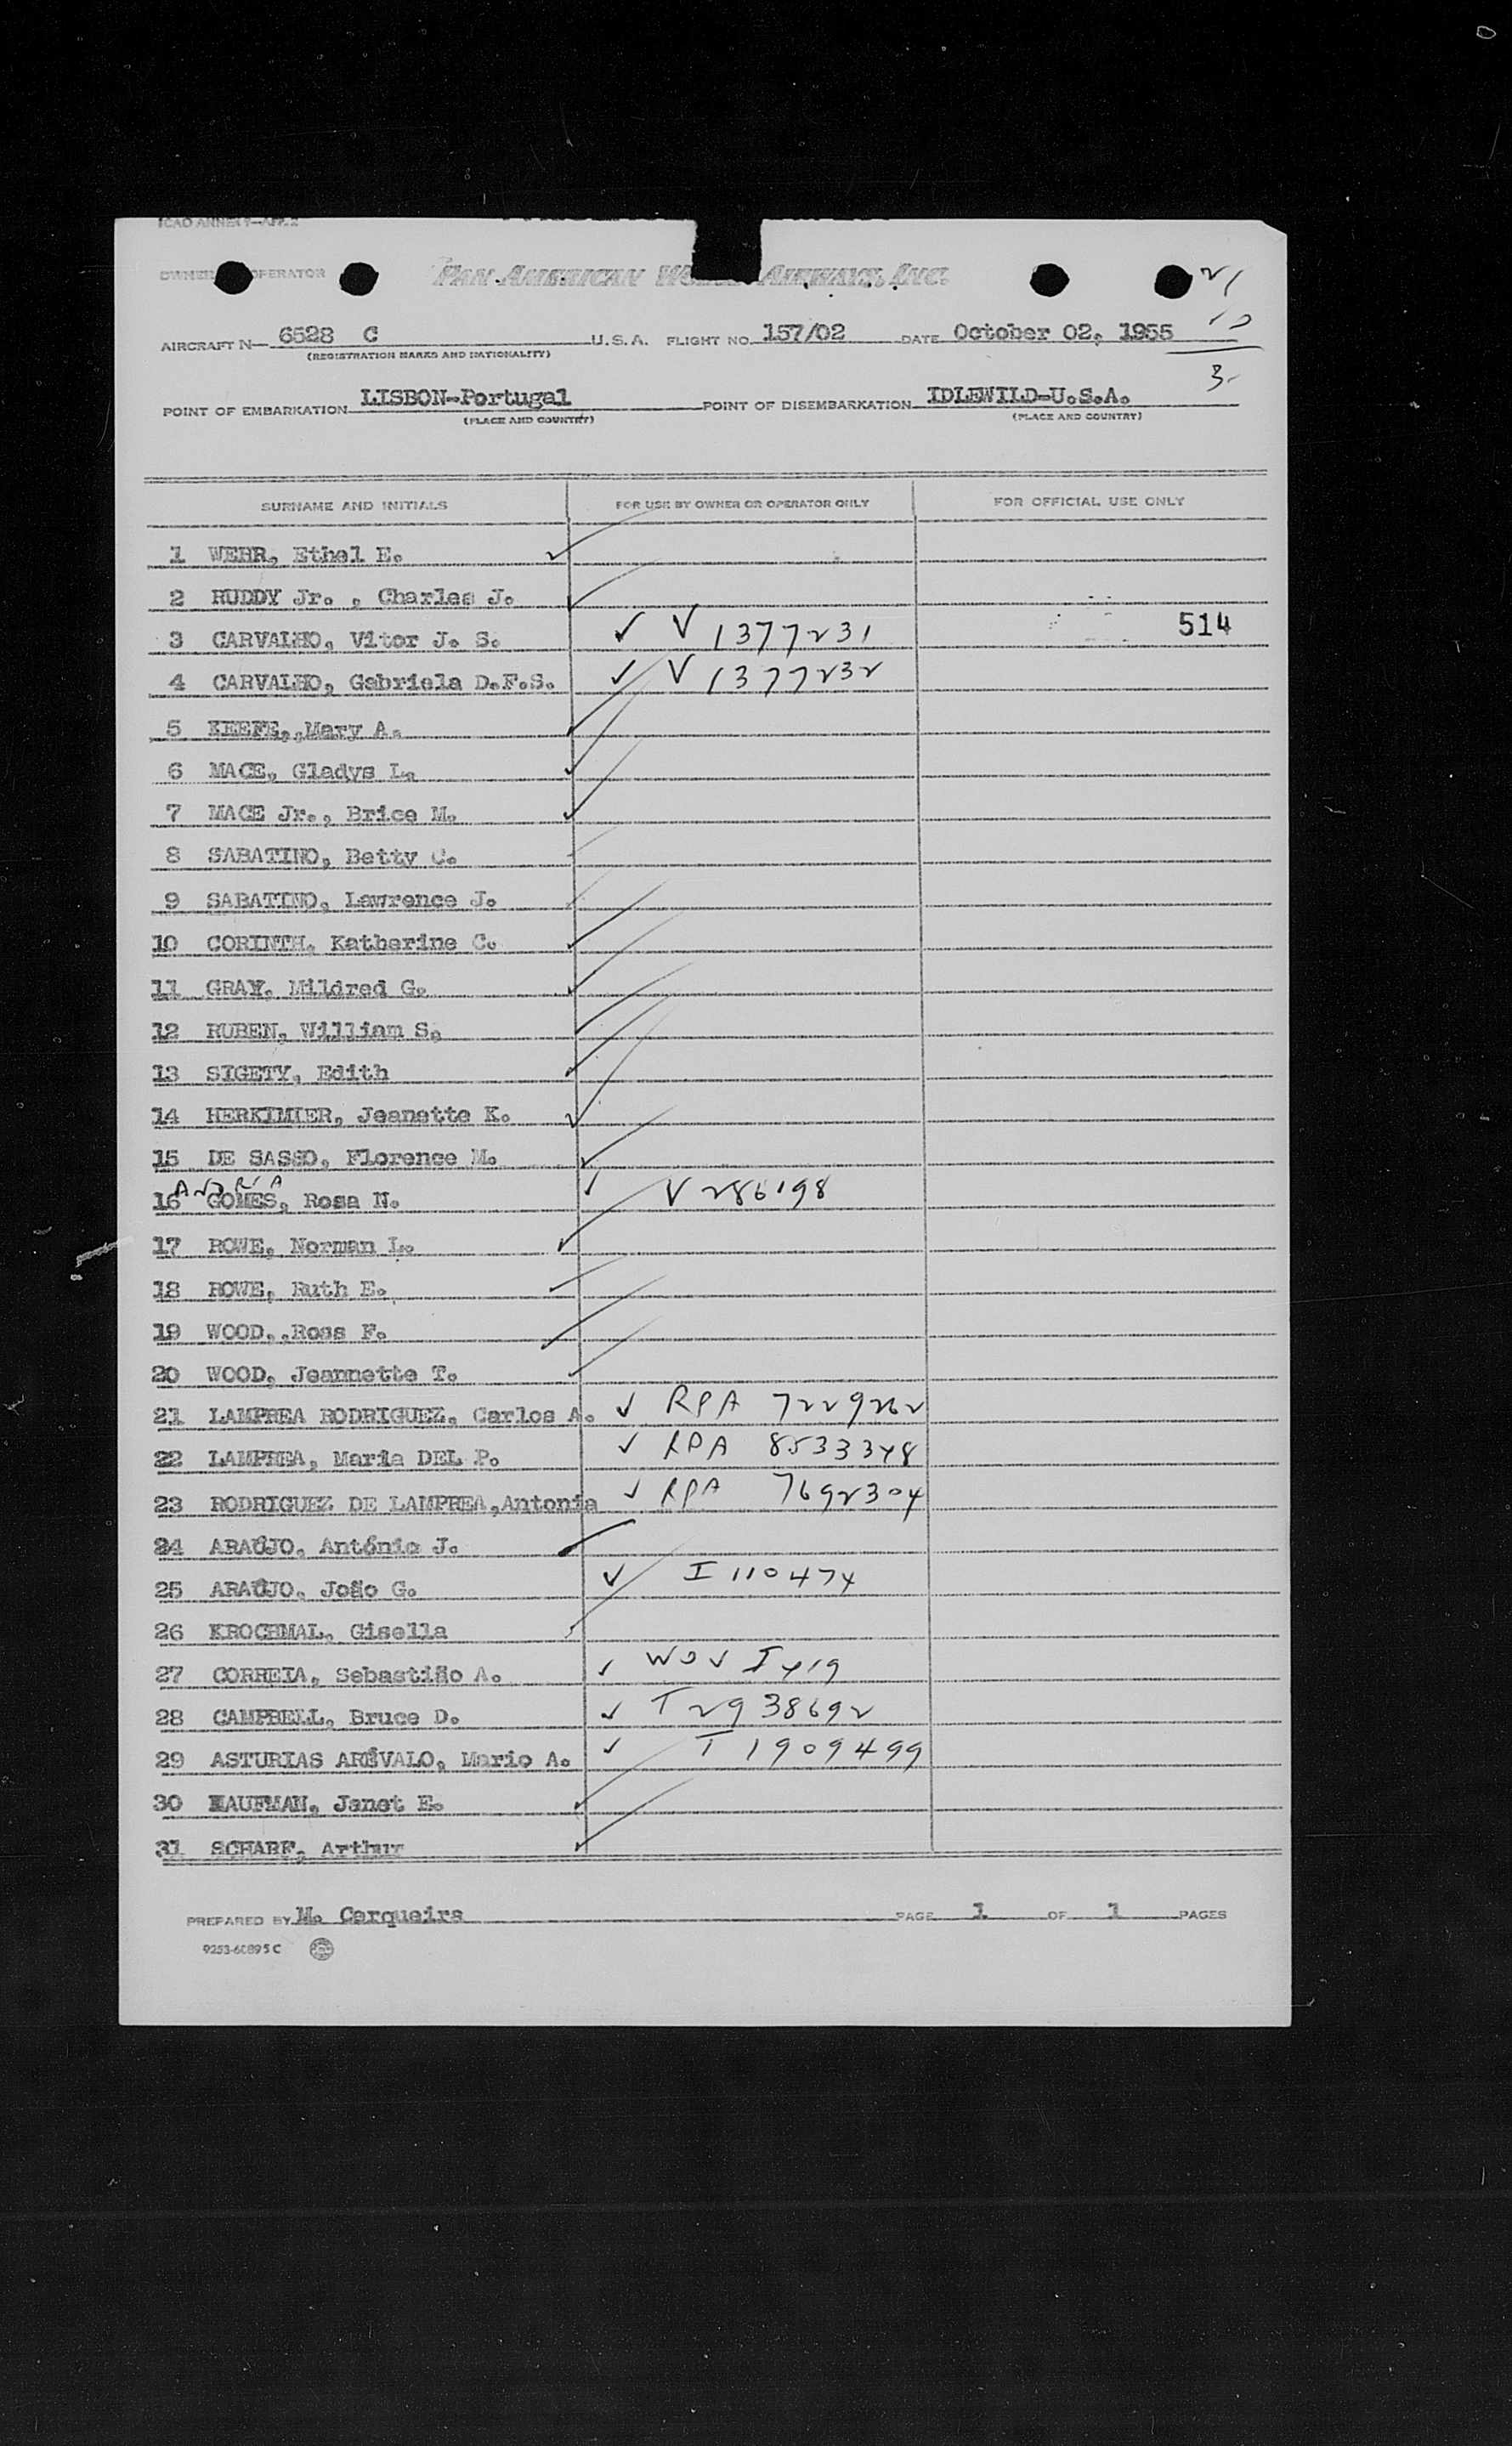 ICAO ANNEX 9-APP. 2
OWNER OPERATOR PAN AMERICAN WORLD AIRWAYS, INC. 21
10
AIRCRAFT N- 6528 C U.S.A. FLIGHT NO. 157/02 DATE October 02, 1955
(REGISTRATION MARKS AND NATIONALITY)
POINT OF EMBARKATION LISBON-Portugal POINT OF DISEMBARKATION IDLEWILD-U.S.A.
(PLACE AND COUNTRY) (PLACE AND COUNTRY)
SURNAME AND INITIALS FOR USE BY OWNER OR OPERATOR ONLY FOR OFFICIAL USE ONLY
1 WEHR, Ethel E.
2 RUDDY Jr. , Charles J.
3 CARVALHO, Vitor J. S. ✓ V 1377231 514
4 CARVALHO, Gabriela D.F.S. ✓ V 1377232
5 KEEFE, Mary A.
6 MACE, Gladys L.
7 MACE Jr., Brice M.
8 SABATINO, Betty C.
9 SABATINO, Lawrence J.
10 CORINTH, Katherine C.
11 GRAY, Mildred G.
12 RUBEN, William S.
13 SIGETY, Edith
14 HERKIMIER, Jeanette K.
15 DE SASSO, Florence M.
16 GOMES, Rosa N. ✓ V 286198
17 ROWE, Norman L.
18 ROWE, Ruth E.
19 WOOD, Ross F.
20 WOOD, Jeannette T.
21 LAMPREA RODRIGUEZ, Carlos A. ✓ RPA 7229262
22 LAMPREA, Maria DEL P. ✓ RPA 8533348
23 RODRIGUEZ DE LAMPREA,Antonia ✓ RPA 7692304
24 ARAÚJO, António J.
25 ARAÚJO, João G. ✓ I 110474
26 KROCHMAL, Gisella
27 CORREIA, Sebastião A. ✓
28 CAMPBELL, Bruce D. ✓ T 2938692
29 ASTURIAS ARÉVALO, Mario A. ✓ T 1909499
30 KAUFMAN, Janet E.
31 SCHARF, Arthur
PREPARED BY M. Cerqueira PAGE 1 OF 1 PAGES
9253-60895 C